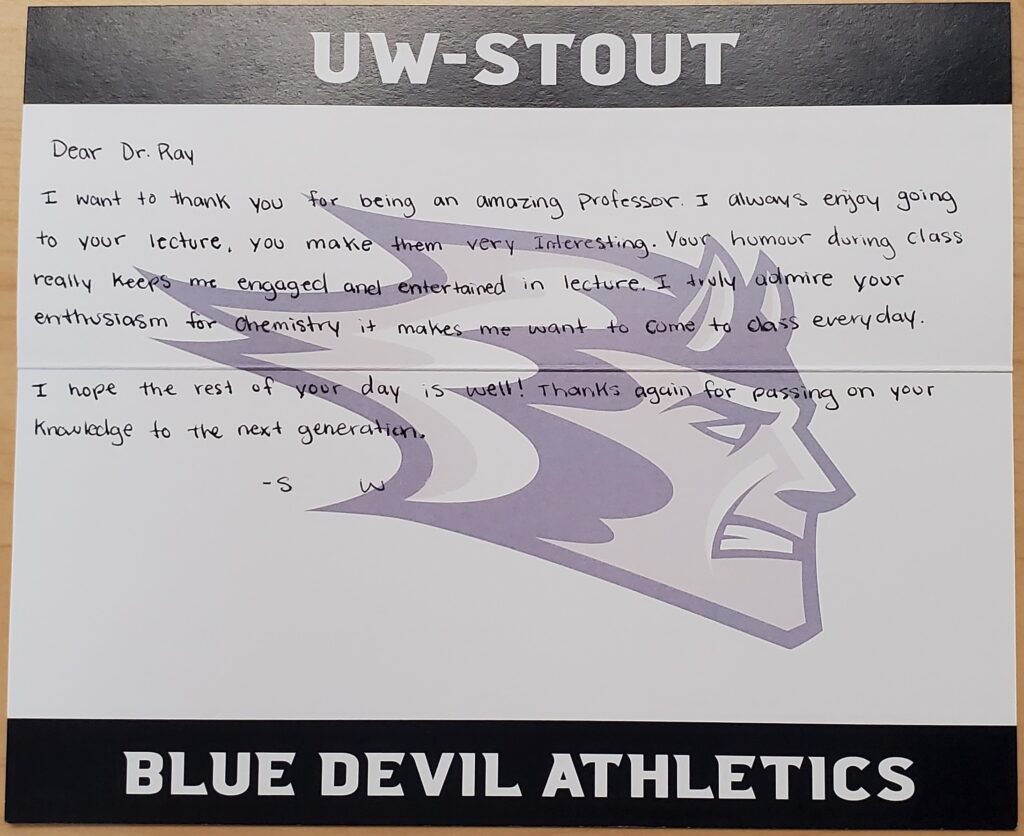 UW-STOUT
Dear Dr. Ray
I want to thank you for being an amazing professor. I always enjoy going
to your lecture, you make them very interesting. Your humour during class
really keeps me engaged and entertained in lecture. I truly admire your
enthusiasm for chemistry it makes me want to come to class everyday.
I hope the rest of your day is well! Thanks again for passing on your
knowledge to the next generation.
-S W
BLUE DEVIL ATHLETICS